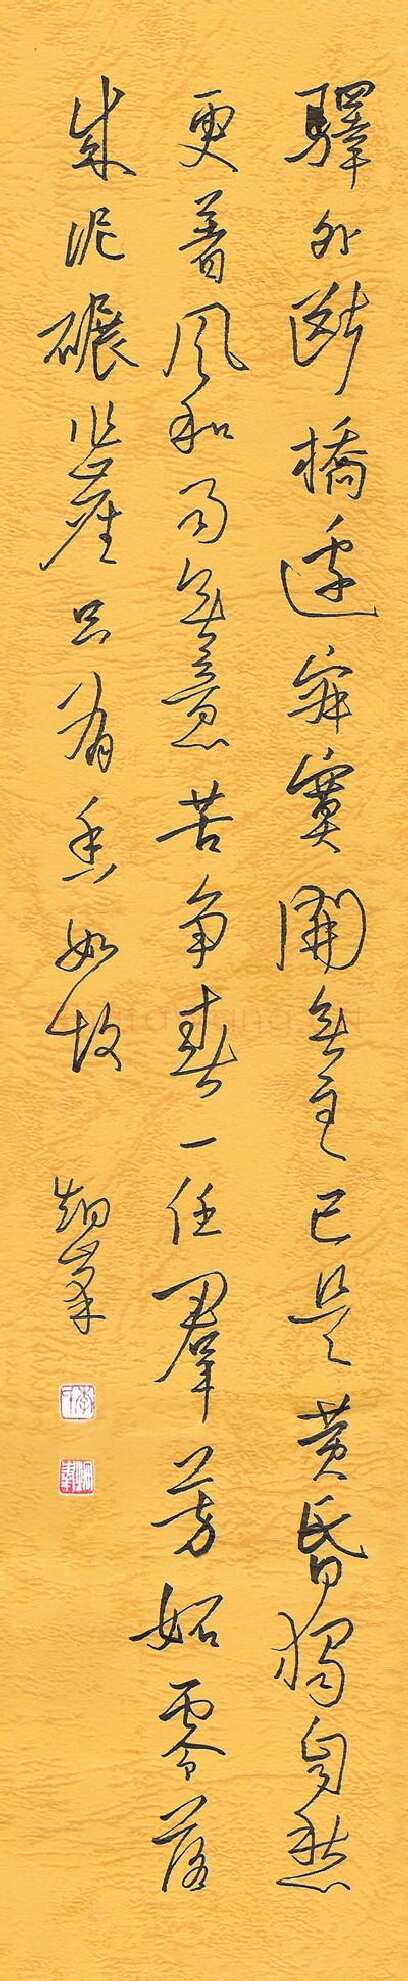 驛外斷橋邊寂寞開無主已是黃昏獨自愁
更著風和雨無意苦爭春一任羣芳妬零落
成泥碾作塵只有香如故